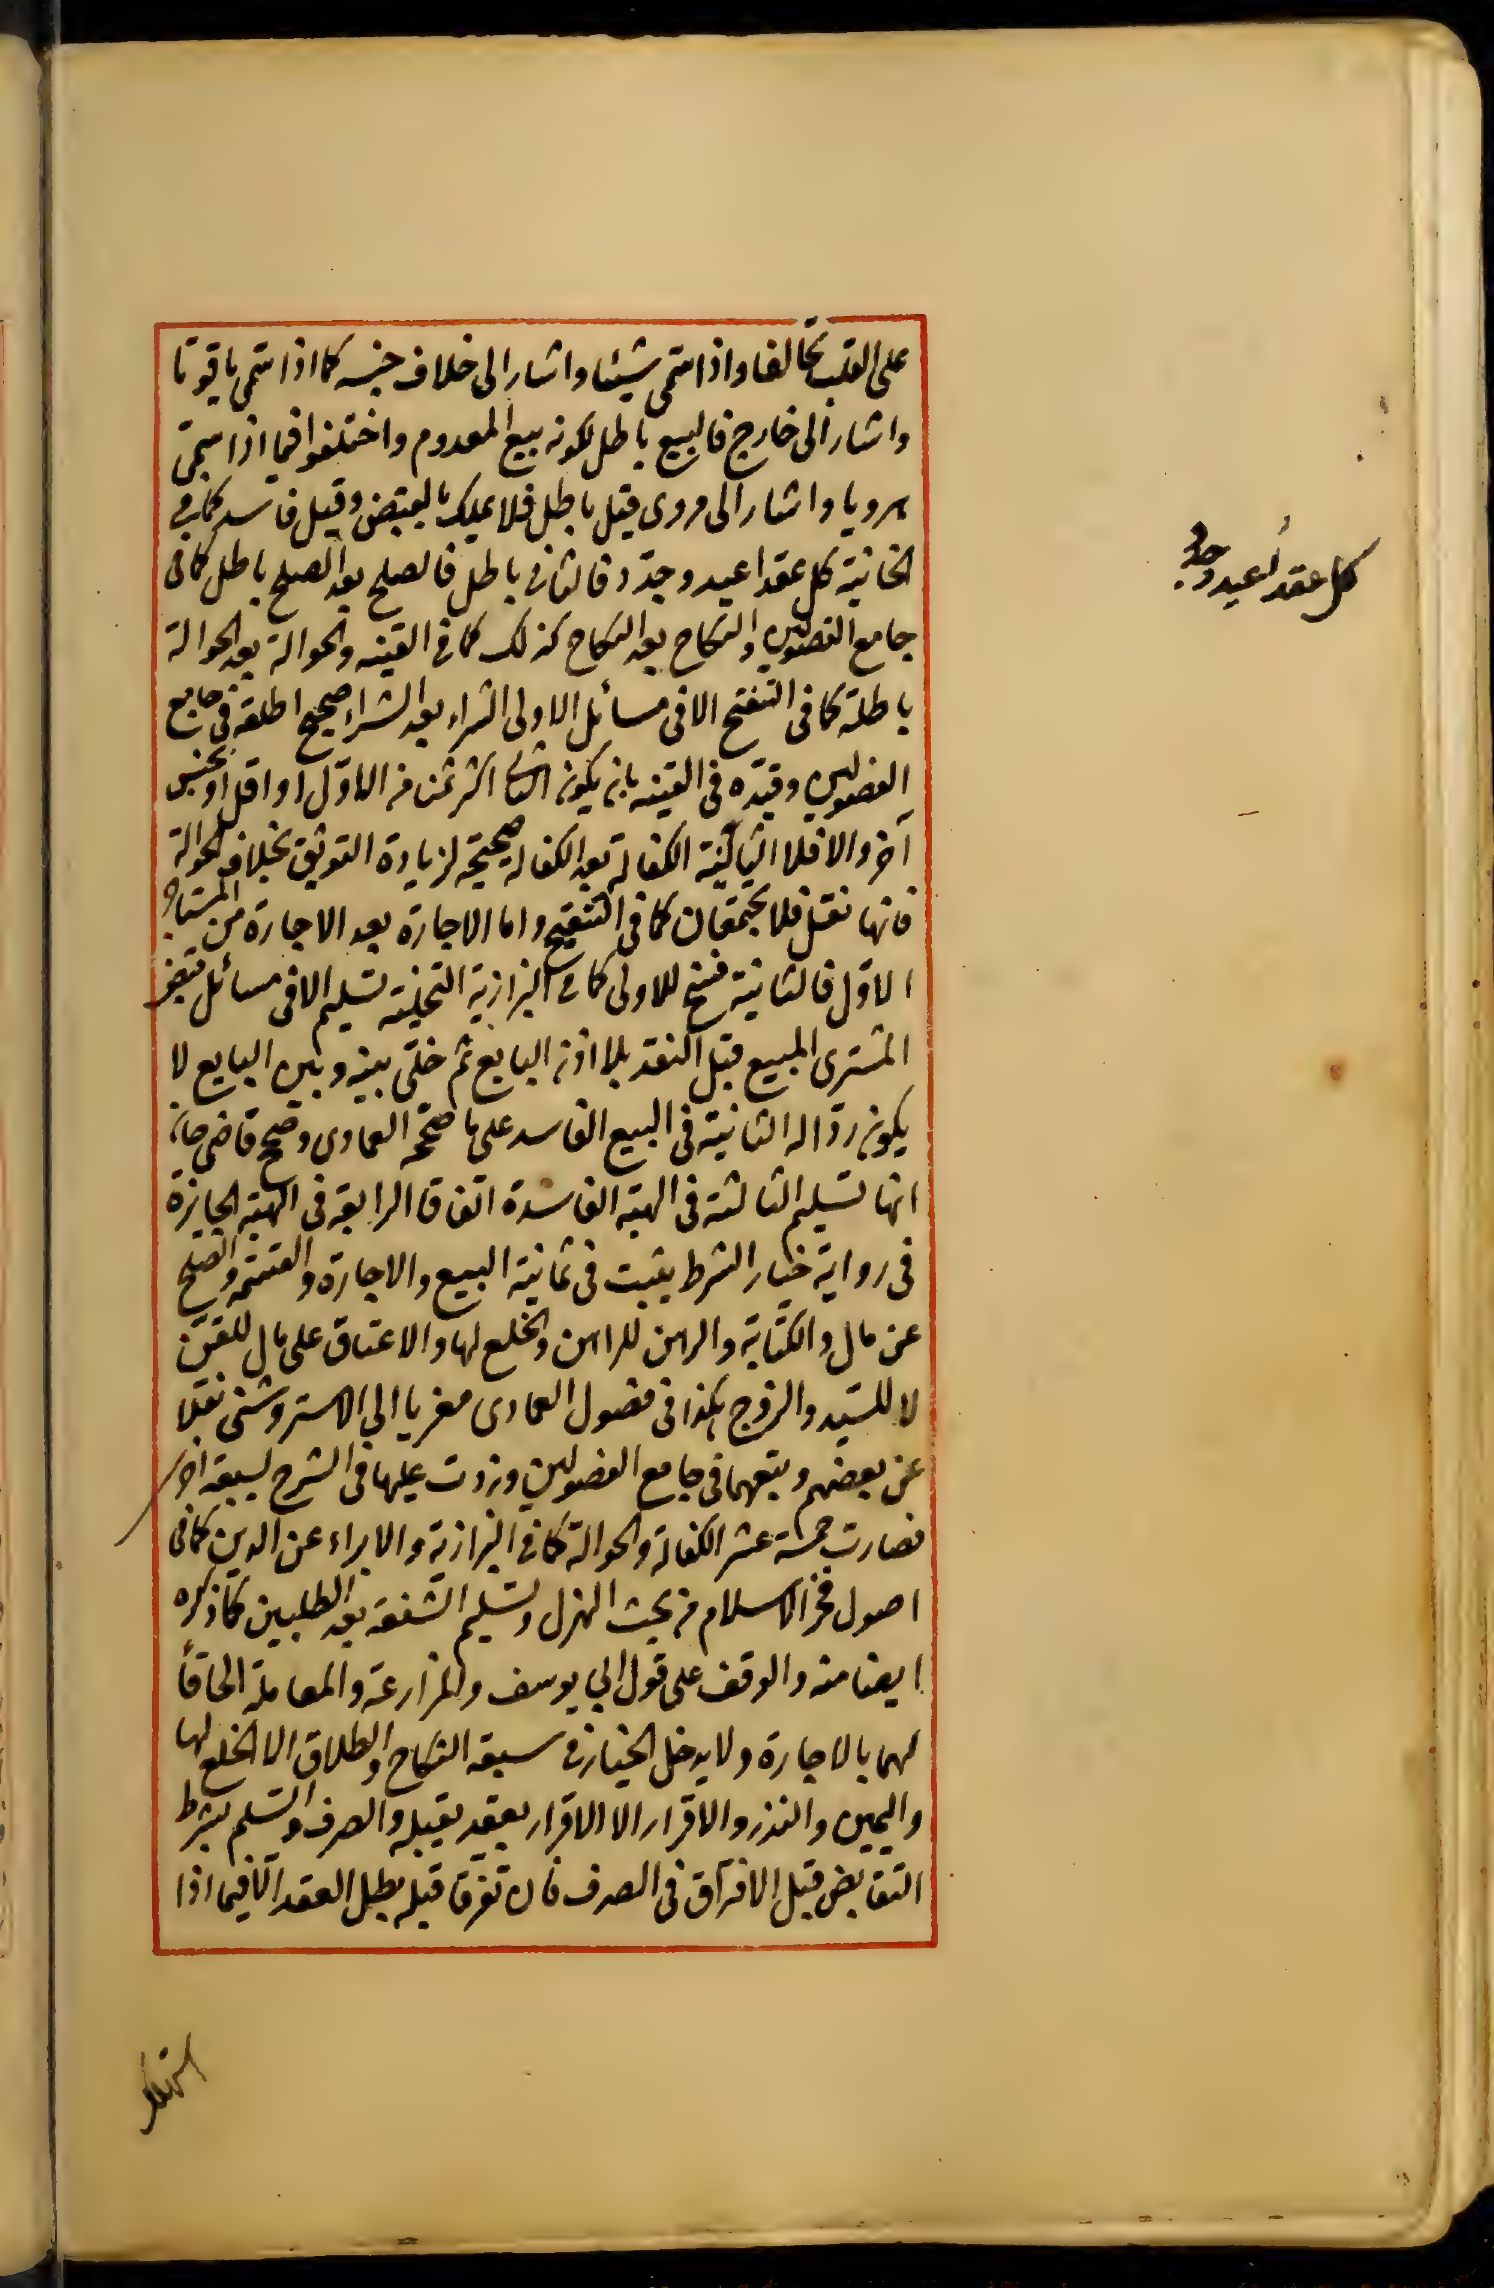 على القلب تحالفا واذا سمى شيئا واشار الى خلاف جنسه كما اذا سمى ياقوتا
واشار الى خارج فالبيع باطل لكونه بيع المعدوم واختلفوا فيما اذا سمى
هرويا واشار الى مروى قيل باطل فلا يملك بالقبض وقيل فاسد كما فى
الخانية كل عقد اعيد وجدد فالثانى باطل فالصلح بعد الصلح باطل كما فى
جامع الفصولين والنكاح بعد النكاح كذلك كما فى القنيه والحوالة بعد الحوالة
باطلة كما فى التنقيح الا فى مسائل الاولى الشراء بعد الشراء صحيح اطلقه فى جامع
الفصولين وقيده فى القنيه بان يكون الثانى اكثر ثمنا من الاول او اقل او بجنس
آخر والا فلا الثانية الكفالة بعد الكفالة صحيحة لزيادة التوثق بخلاف الحوالة
فانها نقل فلا يجتمعان كما فى التنقيح واما الاجارة بعد الاجارة من المستاجر
الاول فالثانية فسخ للاولى كما فى البزازية التخلية تسليم الا فى مسائل قبض
المشترى المبيع قبل النقد بلا اذن البايع ثم خلى بينه وبين البايع لا
يكون ردا له الثانية فى البيع الفاسد على ما صححه العمادى وصحح قاضى خان
انها تسليم الثالثة فى الهبة الفاسدة اتفاقا الرابعة فى الهبة الجايزة
فى رواية خيار الشرط يثبت فى ثمانية البيع والاجارة والقسمة والصلح
عن مال والكتابة والرهن للراهن والخلع لها والاعتاق على مال للقن
لا للسيد والزوج هكذا فى فصول العمادى معزيا الى الاستروشنى نقلا
عن بعضهم وتبعهما فى جامع الفصولين وزدت عليها فى الشرح لسبعة اخر
فصارت خمسة عشر الكفالة والحوالة كما فى البزازية والابراء عن الدين كما فى
اصول فخر الاسلام من بحث الهزل وتسليم الشفعة بعد الطلبين كما ذكره
ايضا منه والوقف على قول ابى يوسف والمزارعة والمعاملة الحاقا
لهما بالاجارة ولا يدخل الخيار فى سبعة النكاح والطلاق الا الخلع لها
واليمين والنذر والاقرار الا الاقرار بعقد يقبله والصرف والسلم بشرط
التقابض قبل الافتراق فى الصرف فان تفرقا قبله بطل العقد الا فيما اذا
كل عقد اعيد وجدد